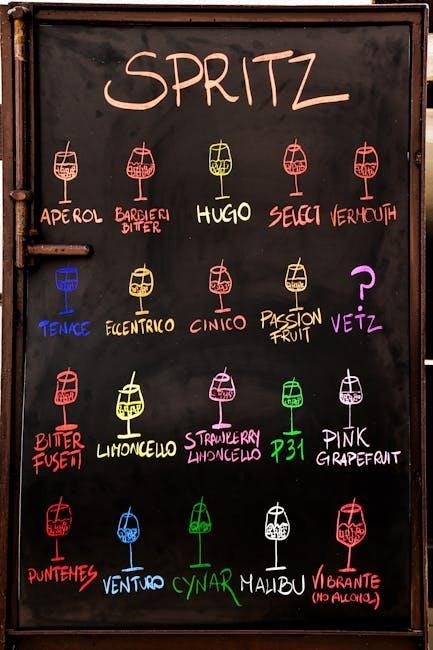 SPRITZ
APEROL BARBIERI BITTER HUGO SELECT VERMOUTH
?
TENACE ECCENTRICO CINICO PASSION FRUIT VETZ
BITTER FUSETI LIMONCELLO STRAWBERRY LIMONCELLO P31 PINK GRAPEFRUIT
PUNTEMES VENTURO CYNAR MALIBU VIBRANTE
(NO ALCOHOL)